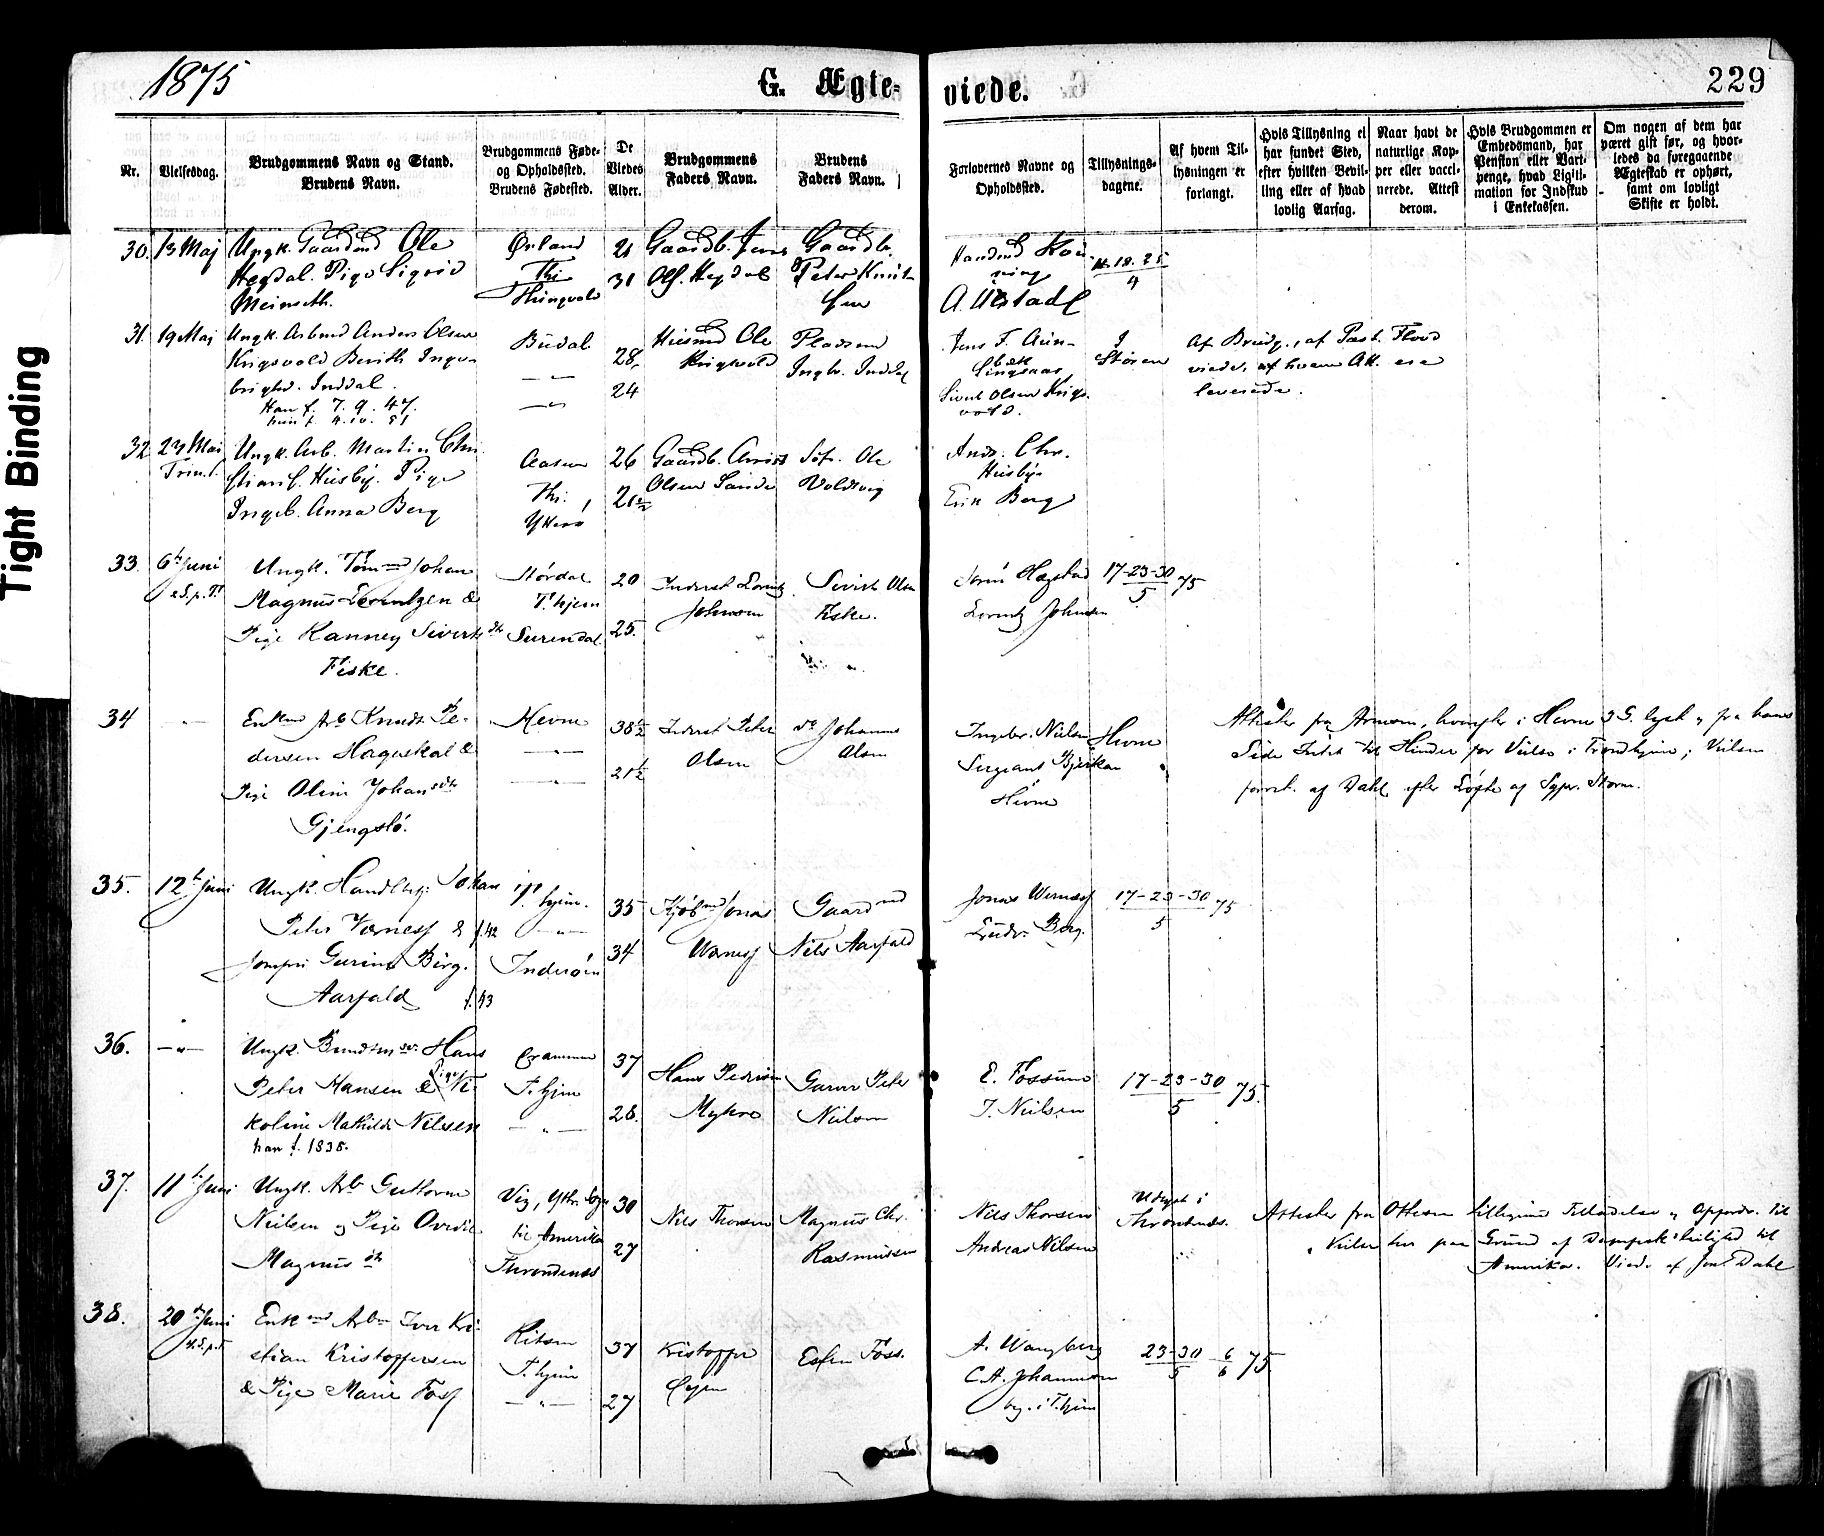 1875
G. Ægte-
viede.
229
Tight Binding
Nr.
Vielsesdag.
Brudgommens Navn og Stand.
Brudens Navn.
Brudgommens Føde-
og Opholdssted.
Brudens Fødested.
De
Viedes
Alder.
Brudgommens
Faders Navn.
Brudens
Faders Navn.
Forlovernes Navne og
Opholdssted.
Tillysnings-
dagene.
Af hvem Til-
lysningen er
forlangt.
Hvis Tillysning ei
har fundet Sted,
efter hvilken Bevil-
ling eller af hvad
lovlig Aarsag.
Naar havt de
naturlige Kop-
per eller vacci-
nerede. Attest
derom.
Hvis Brudgommen er
Embedsmand, har
Pension eller Vart-
penge, hvad Ligiti-
mation for Indskud
i Enkekassen.
Om nogen af dem har
været gift før, og hvor-
ledes da foregaaende
Ægteskab er ophørt,
samt om lovligt
Skifte er holdt.
30. 13 Maj
Ungk. Gaardmd Ole
Hegdal. Pige Sigrid
Meinseth.
Ørland
Thj
21
31
Gaardb. Jens
Ols. Hegdal
Gaardb.
Peter Knut-
sen
A. Ulstad
18. 25
4
31. 19 Maj
Ungk. Arbmd Anders Olsen
Krigsvold Berith Inge-
brigtsd. Inddal.
Han f. 7. 9. 47.
hun f. 4. 10. 51
Budal
— " —
— " —
28
24
Husmd Ole
Krigsvold
Pladsmd
Ingbr. Inddal
Jens F. Aun-
Singsaas
Sivert Olsen Krigs-
vold.
I
Støren
Af Brudg., af Past. Flood
viede, af hvem Att. ere
leverede.
32. 23 Maj
Trin. f.
Ungk. Arb. Martin Chri
stians. Husby. Pige
Ingeb. Anna Berg
Aasen
Thj.
Ytterø
26
21 1/2
Gaardb.
Olsen Sande
Ole
Voldsvig
Andr. Chr.
Husby
Erik Berg
33. 6te Juni
2 S. p. Tr
Ungk. Tømmd Johan
Magnus Lorentzen &
Pige Ranney Siverts dtr
Fiske.
Størdal
T.hjem
Surendal
20
25.
Inderst Lorentz
Johnsen
Sivert Olsen
Fiske.
Søren Hegstad
Lorentz Johnsen
17-23-30
5
75
34 — " —
Enkmd Arb Knudt Pe-
dersen Hageskal &
Pige Oline Johansdtr
Gjengstø.
Hevne
— " —
— " —
38 1/2
21 1/2
Inderst Peter
Olsen
do Johannes
Olsen
Ingebr. Nielsen
Sergeant Bjerkan
Hevne
Hevne
Attester fra Armeen, hvorefter i Hevne 3 G. lyst & fra hans
Side Intet til Hinder for Vielse i Trondhjem; Vielsen
forret. af Dahl efter Løfte af Sgpr. Storm.
35. 12te Juni
Ungk. Handlbetj. Johan
Peter Værness & f. 42
Jomfru Gurine Birg.
Aarfald f. 43
T.hjem.
— " —
Inderøen
35
34
Kjøbmd Jonas
Wærness
Gaardmd
Nils Aarfald
Jonas Wærness
Ludv. Berg.
17-23-30
5
75
36. — " —
Ungk. Bundtmsvr Hans
Peter Hansen & Pige Ni-
koline Mathilde Nilsen
han f. 1838.
T.hjem
— " —
37
28.
Hans Pedersen
Myhre
Garver Peter
Nielsen
E. Fossum
J. Nielsen
17-23-30
5
75.
37. 11te Juni
Ungk. Arb Guttorm
Nielsen og Pige Ovedie
Magnusdtr
Vig, Ytter Sogn
til Amerika
Throndenæs
30
27
Nils Thorsen
Magnus Chr.
Rasmussen
Nils Thorsen
Andreas Nilsen
Udlyst i
Throndenæs.
Attester fra Ottesen Tilladelse & Opfordr. til
Vielse her paa Grund af Dampsk. leilighed til
Amerika. Viede af Jens Dahl
38. 20de Juni
4. S. p. T.
Enkemd Arbm Iver Kri-
stian Kristoffersen
& Pige Marie Foss
Ritsen
T.hjem
— " —
37
27
Kristoffer
Esten Foss.
A. Wangberg
C. A. Johannsen
beg. i T.hjem
23-30
5
6
6
75.